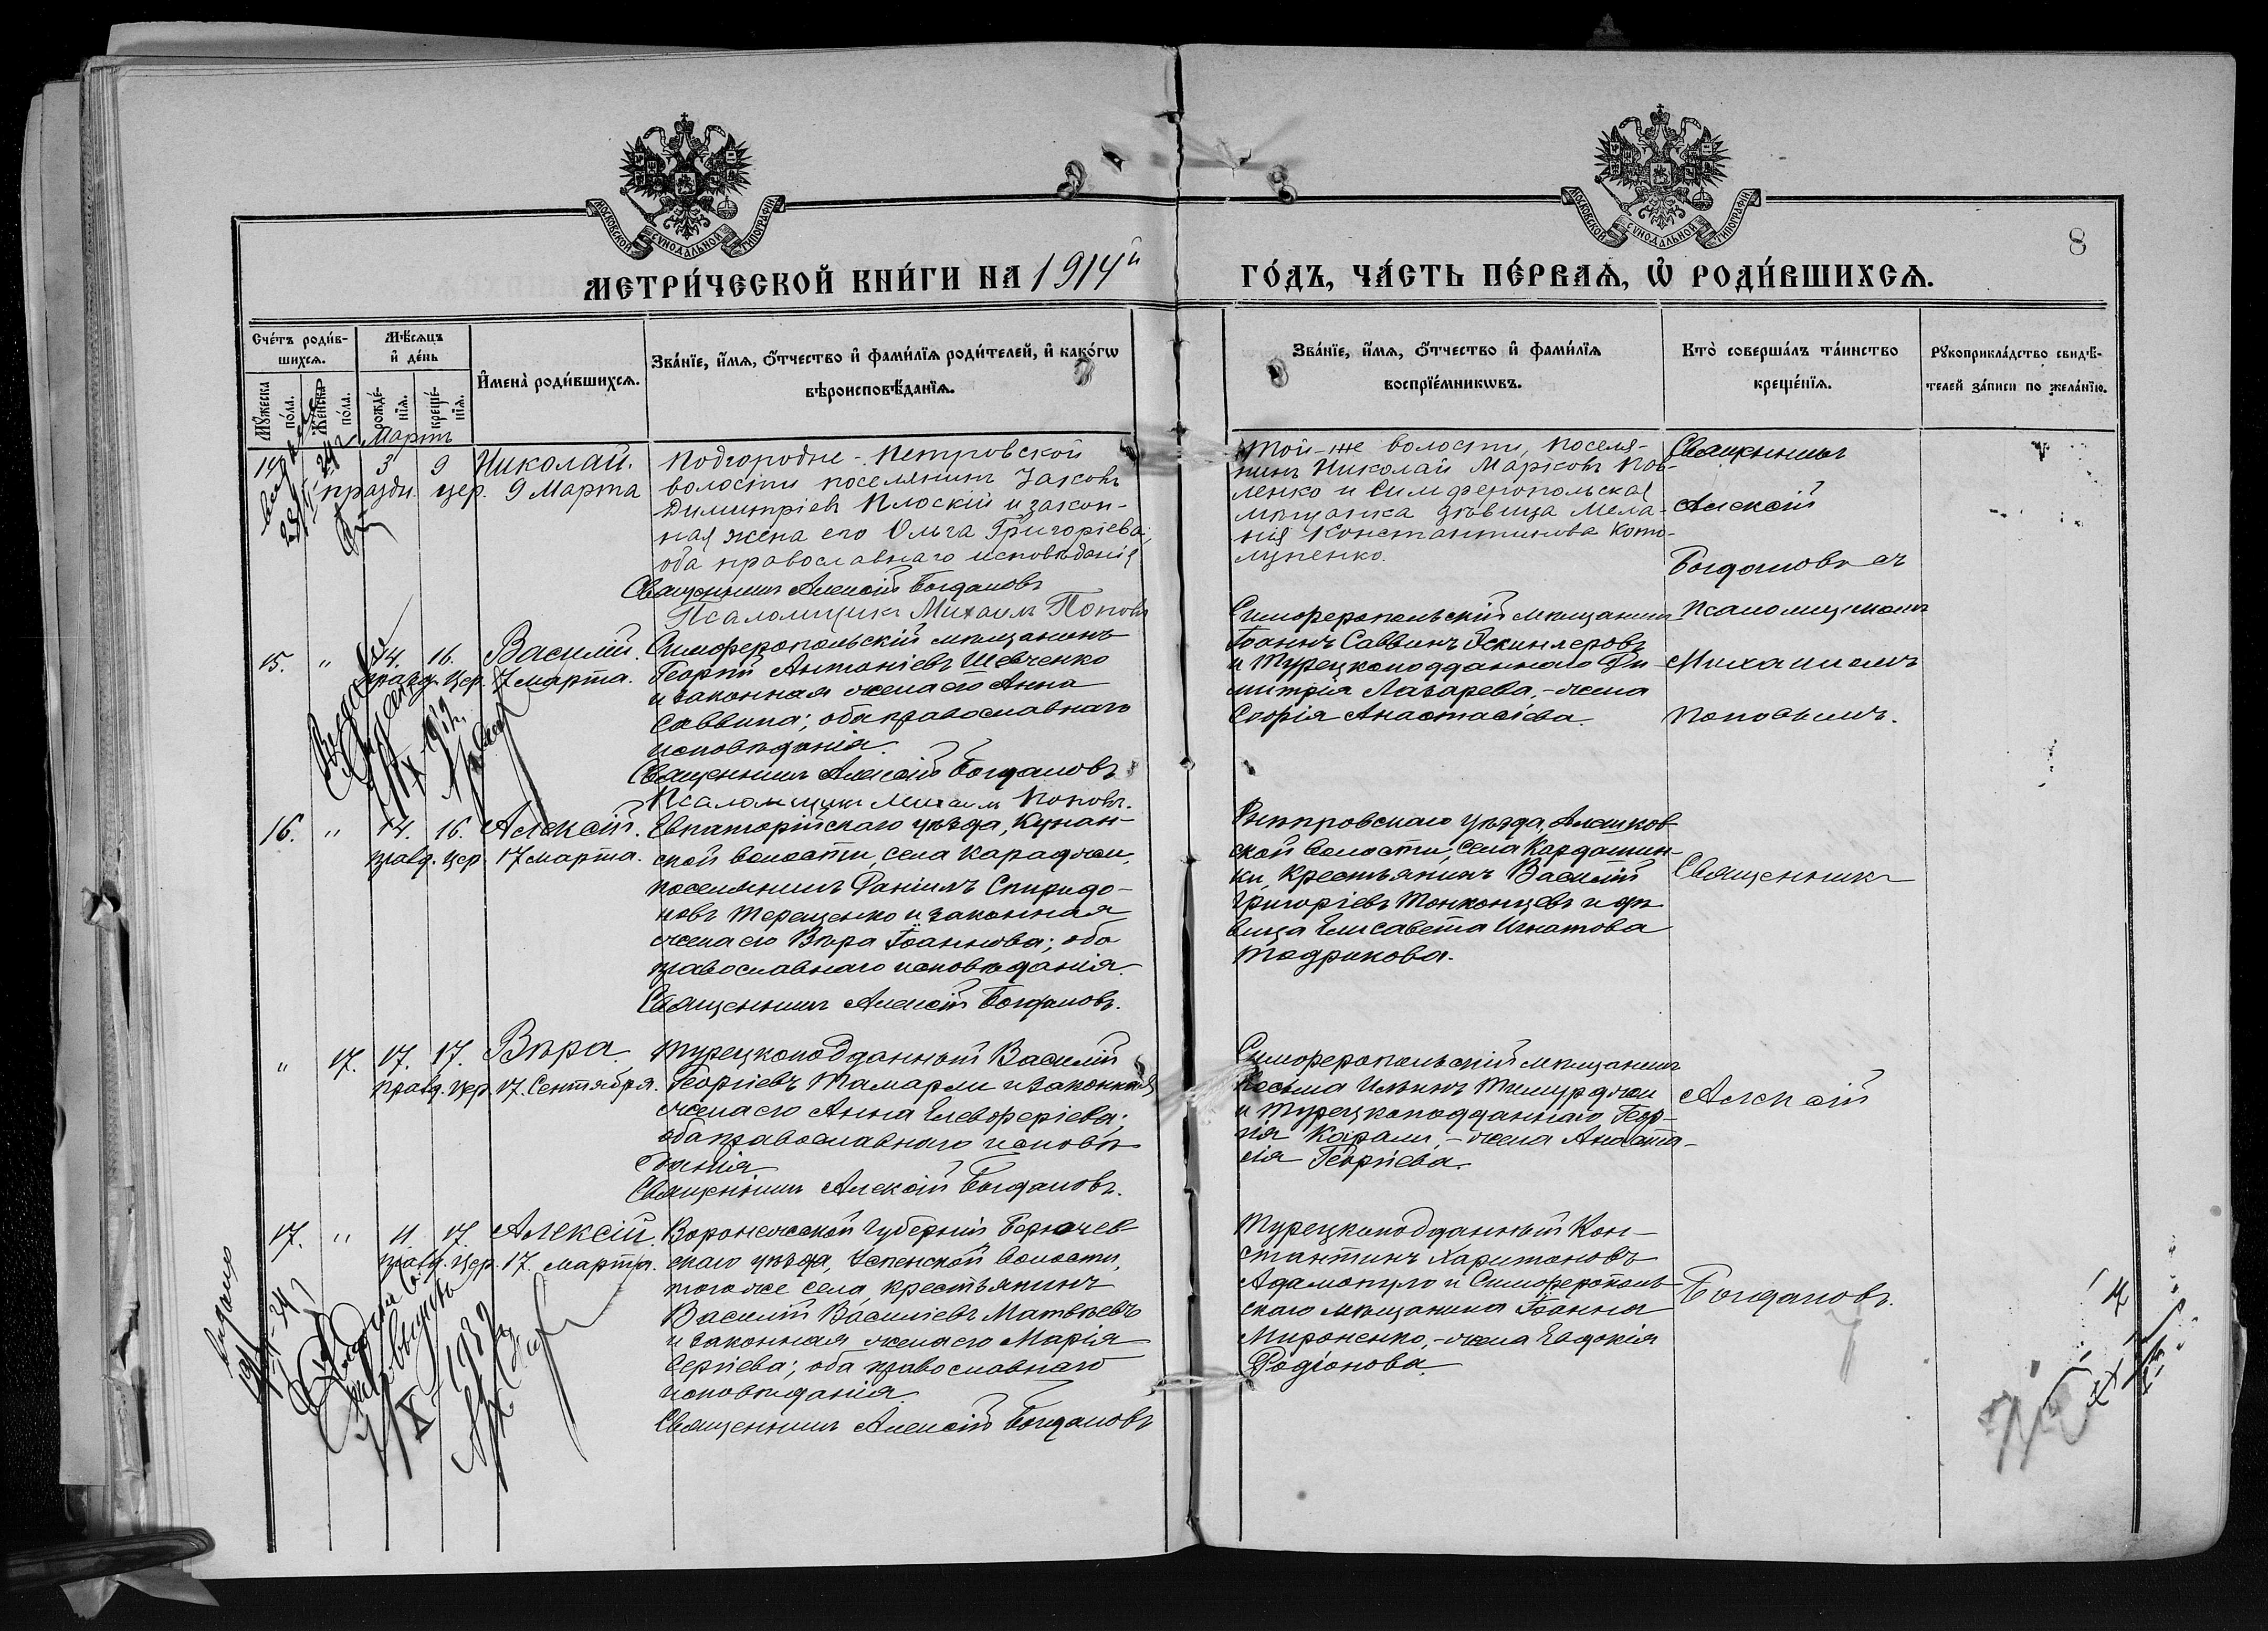 МОСКОВСКОЙ СѴНОДАЛЬНОЙ ТИПОГРАФІИ
МОСКОВСКОЙ СѴНОДАЛЬНОЙ ТИПОГРАФІИ
8
МЕТРИ́ЧЕСКОЙ КНИ́ГИ НА 1914й
ГО́ДЪ, ЧА́СТЬ ПЕ́РВАѦ, Ѡ҆ РОДИ́ВШИХСѦ.
Сче́тъ роди́в-
шихсѧ.
Мѹжеска по́ла.
Же́нска по́ла.
Мѣ́сѧцъ
и҆ де́нь
рожде́-
нїѧ.
креще́-
нїѧ.
И҆мена̀ роди́вшихсѧ.
Зва́нїе, и҆́мѧ, ѻ҆́тчество и҆ фами́лїѧ роди́телей, и҆ како́гѡ
вѣроисповѣ́данїѧ.
Зва́нїе, и҆́мѧ, ѻ҆́тчество и҆ фами́лїѧ
воспрїе́мникѡвъ.
Кто̀ соверша́лъ та́инство
креще́нїѧ.
Рѹкоприкла́дство свидѣ́-
телей за́писи по жела́нїю.
Мартъ
14 3 9 Николай.
праздн. цер. 9 Марта
Подгородне-Петровской
волости поселянинъ Іаковъ
Димитріевъ Плоскій и закон-
ная жена его Ольга Григоріева,
оба православнаго исповѣданія
Священникъ Алексій Богдановъ
Псаломщикъ Михаилъ Поповъ
Той-же волости, поселя-
нинъ Николай Марковъ Пов-
ленко и Симферопольская
мѣщанка дѣвица Мела-
нія Константинова Кото-
лупенко.
Священникъ
Алексій
Богдановъ съ
псаломщикомъ
Михаиломъ
Поповымъ.
15. " 14. 16. Василій.
празд. цер. 17 марта.
Симферопольскій мѣщанинъ
Георгій Антоніевъ Шевченко
и законная жена его Анна
Саввина; оба православнаго
исповѣданія.
Священникъ Алексій Богдановъ
Псаломщикъ Михаилъ Поповъ.
Симферопольскій мѣщанинъ
Іоаннъ Саввинъ Искинлеровъ
и Турецкоподданнаго Ди-
митрія Лазарева, - жена
Софія Анастасіева.
16. " 14. 16. Алексій.
празд. цер. 17 марта.
Евпаторійскаго уѣзда, Кунан-
ской волости, села Караджи,
поселянинъ Даніилъ Спиридо-
новъ Терещенко и законная
жена его Вѣра Іоаннова; оба
православнаго исповѣданія.
Священникъ Алексій Богдановъ.
Днѣпровскаго уѣзда, Алешков-
ской волости, села Кардашин-
ки, крестьянинъ Василій
Григоріевъ Тонконцевъ и дѣ-
вица Елисавета Игнатова
Тодрикова.
Священникъ
" 17. 17. 17. Вѣра.
празд. цер. 17. Сентября.
Турецкоподданный Василій
Георгіевъ Тамарли и законная
жена его Анна Елевферіева;
оба православнаго исповѣ-
данія
Священникъ Алексій Богдановъ.
Симферопольскій мѣщанинъ
Косьма Ильинъ Тимурджи
и Турецкоподданнаго Геор-
гія Карали, - жена Анаста-
сія Георгіева.
Алексій
17. " 11. 17. Алексій.
празд. цер. 17. марта.
Воронежской Губерніи Бирючев-
скаго уѣзда, Успенской волости,
того же села крестьянинъ
Василій Василіевъ Матвѣевъ
и законная жена его Марія
Сергіева; оба православнаго
исповѣданія.
Священникъ Алексій Богдановъ
Турецкоподданный Кон-
стантинъ Харитоновъ
Адамопуло и Симферополь-
скаго мѣщанина Іоанна
Мироненко, - жена Евдокія
Родіонова.
Богдановъ.